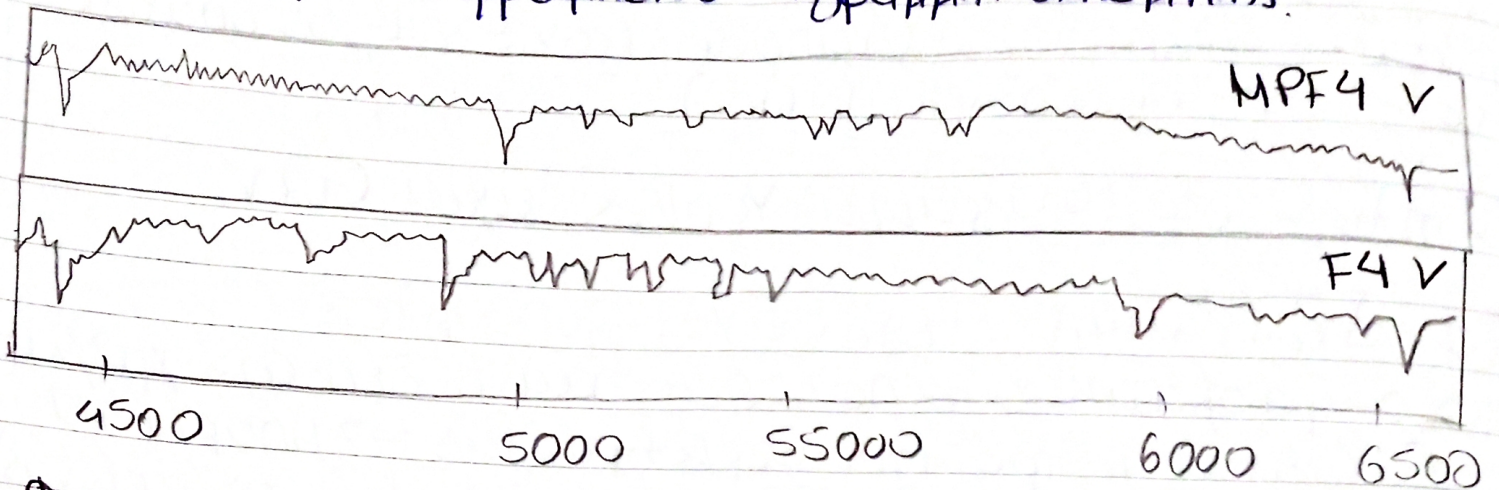 MPF4 V
F4 V
4500 5000 55000 6000 6500